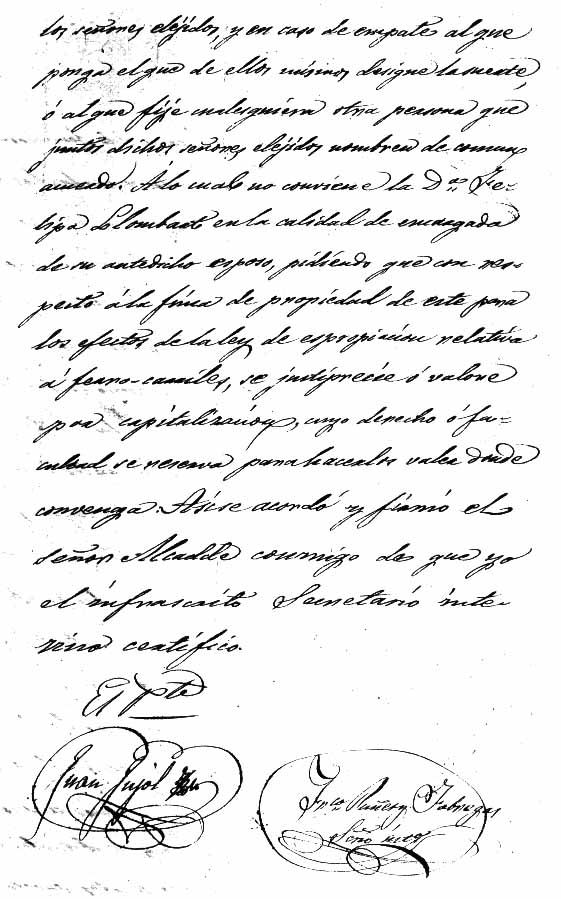 los señores eléjidos, y en caso de empate al que
ponga el que de ellos mismos designe la suerte,
ó al que fije cualesquiera otra persona que
juntos dichos señores eléjidos nombren de comun
acuerdo. Á lo cual no conviene la D.ª Fe-
lipa Llombart en la calidad de encargada
de su antedicho esposo, pidiendo que con res-
pecto á la finca de propiedad de este para
los efectos de la ley de espropiacion relativa
á ferro-carriles, se justiprecie ó valore
por capitalizacion, cuyo derecho ó fa-
cultad se reserva para hacerlos valer donde
convenga. Asi se acordó y firmó el
señor Alcalde conmigo de que yo
el infrascrito Secretario inte-
rino certifico.
El Pte
Juan Pujol
Fnco Fabregas
Srio